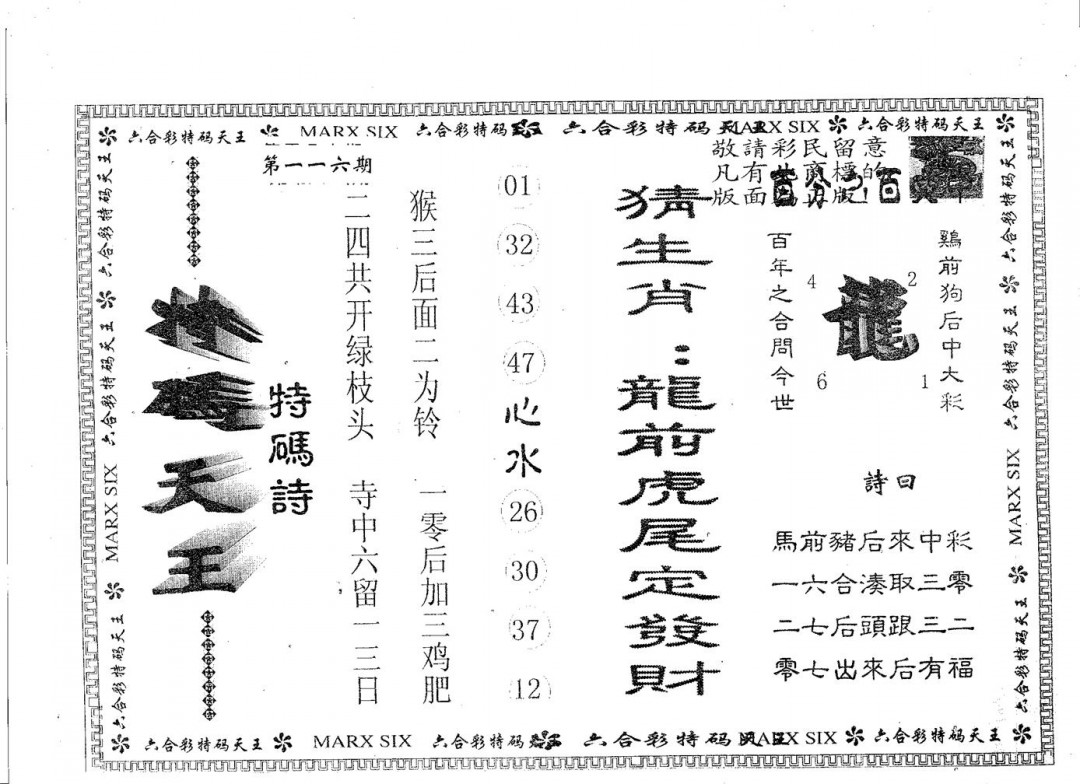 六合彩特码天王 MARX SIX 六合彩特码 六合彩特码天王 MARX SIX 六合彩特码天王
第一一六期
敬請彩民留意
凡有 商標的
版面 版!
百
鷄前狗后中大彩
龍
百年之合問今世
4
2
6
1
詩曰
馬前豬后來中彩
一六合湊取三零
二七后頭跟三二
零七出來后有福
猜生肖:龍前虎尾定發財
01
32
43
47
心水
26
30
37
12
猴三后面二为铃 一零后加三鸡肥
二四共开绿枝头 寺中六留一三日
特碼詩
特碼天王
六合彩特码天王
六合彩特码天王
MARX SIX
六合彩特码天王
六合彩特码天王
六合彩特码天王
MARX SIX
六合彩特码天王
六合彩特码天王 MARX SIX 六合彩特码 六合彩特码天王 MARX SIX 六合彩特码天王